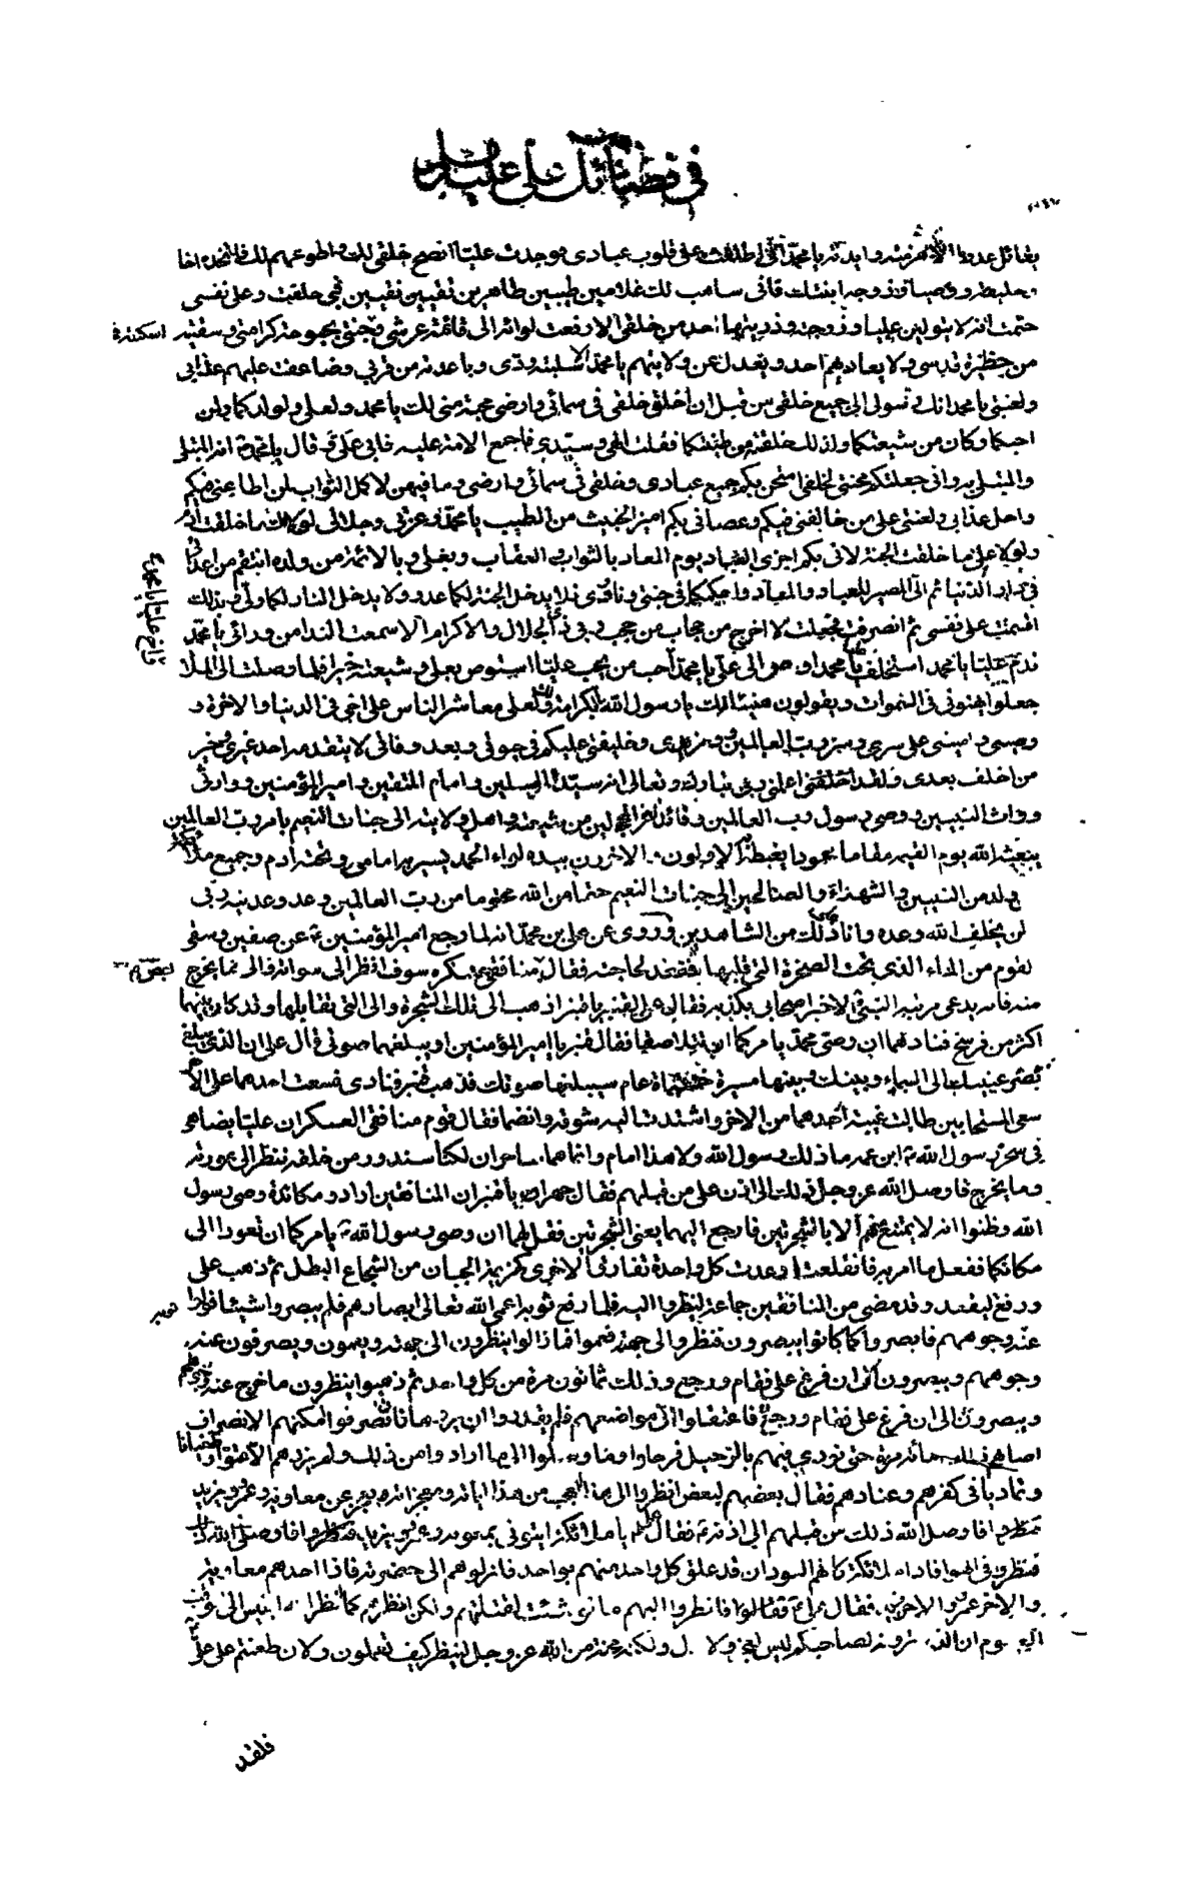 في فضائل علي عليه السلام
يا محمد اني اطلعت على قلوب عبادي فوجدت عليا انصح خلقي لك واطوعهم لك فاتخذه اخا
وخليفة ووصيا وزوجه ابنتك فاني ساهب لك غلامين طيبين طاهرين تقيين نقيين فبي حلفت وعلى نفسي
حتمت انه لا يتولين عليا وزوجته وذريتهما احد من خلقي الا رفعت لوائه الى قائمة عرشي وجنتي وبحبوحة كرامتي وسقيته
اسكنته في
من حظيرة قدسي ولا يعاديهم احد ويعدل عن ولايتهم يا محمد الا سلبته ودي وباعدته من قربي وضاعفت عليهم عذابي
ولعنتي يا محمد انك رسولي الى جميع خلقي من قبل ان اخلق خلقي في سمائي وارضي محبة مني لك يا محمد ولعلي ولولدكما ولمن
احبكما وكان من شيعتكما ولذلك خلقته من طينتكما فقلت الهي وسيدي فاجمع الامة عليه فابى علي وقال يا محمد انه المبتلى
والمبتلى به واني جعلتكم محنتي لخلقي امتحن بكم جميع عبادي وخلقي في سمائي وارضي وما فيهن لاكمل الثواب لمن اطاعني فيكم
واحل عذابي ولعنتي على من خالفني فيكم وعصاني بكم اميز الخبيث من الطيب يا محمد وعزتي وجلالي لولاك ما خلقت آدم
ولولا علي ما خلقت الجنة لاني بكم اجزي العباد يوم المعاد بالثواب والعقاب وبعلي وبالائمة من ولده انتقم من اعدائي
في دار الدنيا ثم الي المصير للعباد والمعاد واحكمكما في جنتي وناري فلا يدخل الجنة لكما عدو ولا يدخل النار لكما ولي وبذلك
اقسمت على نفسي ثم انصرفت فجعلت لا اخرج من حجاب من حجب ربي ذي الجلال والاكرام الا سمعت الندا من ورائي يا محمد
قدم عليا يا محمد استخلف عليا يا محمد اوص الى علي يا محمد احب من يحب عليا استوص بعلي وشيعته خيرا فلما وصلت الى الملا
واخ عليا يا محمد
جعلوا يهنوني في السموات ويقولون هنيئا لك يا رسول الله بكرامة لك ولعلي معاشر الناس علي اخي في الدنيا والاخرة و
وصيي واميني على سري وسر رب العالمين ووزيري وخليفتي عليكم في حيوتي وبعد وفاتي لا يتقدمه احد غيري وخير
من اخلف بعدي ولقد اعلمني ربي تبارك وتعالى انه سيد المسلمين وامام المتقين وامير المؤمنين ووارثي
ووارث النبيين ووصي رسول رب العالمين وقائد الغر المحجلين من شيعته واهل ولايته الى جنات النعيم بامر رب العالمين
يبعثه الله يوم القيمة مقاما محمودا يغبطه الاولون والاخرون بيده لواء الحمد يسير به امامي وتحته آدم وجميع من
ولد من النبيين والشهداء والصالحين الى جنات النعيم حتما من الله محتوما من رب العالمين وعد وعدنيه ربي
لن يخلف الله وعده وانا على ذلك من الشاهدين وروى عن علي بن محمد انه لما رجع امير المؤمنين عن صفين وسقى
لقوم من الماء الذي تحت الصخرة التي قلبها فقعد لحاجته فقال بعض منافقي عسكره سوف انظر الى سوأته والى ما يخرج
منه فانه يدعي مرتبة النبي لاخبر اصحابي بكذبه فقال علي لقنبر يا قنبر اذهب الى تلك الشجرة والى التي تقابلها وقد كان بينهما
اكثر من فرسخ فنادهما ان وصي محمد يامركما ان تتلاصقا فقال قنبر يا امير المؤمنين او يبلغهما صوتي قال علي ان الذي يبلغ
بصر عينيك الى السماء وبينك وبينها مسيرة خمسمائة عام سيبلغهما صوتك فذهب قنبر فنادى فسعت احدهما على الاخرى
سعي المتحابين طالت غيبة احدهما من الاخر واشتدت اليه شوقه وانضما فقال قوم من منافقي العسكر ان عليا يضاهي
في سحره رسول الله ابن عمه ما ذلك رسول الله ولا هذا امام وانما هما ساحران لكنا سندور من خلفه ننظر الى عورته
وما يخرج فاوصل الله عز وجل ذلك الى اذن علي من قبلهم فقال جهرا يا قنبر ان المنافقين ارادوا مكائدة وصي رسول
الله وظنوا انه لا يمتنع منهم الا بالشجرتين فارجع اليهما يعني الشجرتين فقل لهما ان وصي رسول الله يامركما ان تعودا الى
مكانكما ففعل ما امر به فانقلعتا وعدت كل واحدة تفارق الاخرى كهزيمة الجبان من الشجاع البطل ثم ذهب علي
ورفع ليقعد وقد مضى من المنافقين جماعة لينظروا اليه فلما رفع ثوبه اعمى الله تعالى ابصارهم فلم يبصروا شيئا فولوا
عنه وجوههم فابصروا كما كانوا يبصرون فنظروا الى جهته فعموا فما زالوا ينظرون الى جهته ويعمون ويصرفون عنه
وجوههم ويبصرون الى ان فرغ علي فقام ورجع وذلك ثمانون مرة من كل واحد ثم ذهبوا ينظرون ما خرج عنه
ويبصرون الى ان فرغ علي فقام ورجع فاعتقلوا في مواضعهم فلم يقدروا ان يروها فاذا انصرفوا امكنهم الانصراف
اصابهم ذلك مائة مرة حتى نودي فيهم بالرحيل فرحلوا وما وصلوا الى ما ارادوا من ذلك ولم يزدهم الا عتوا وطغيانا
وتماديا في كفرهم وعنادهم فقال بعضهم لبعض انظروا الى هذا العجب من هذا اياته ومعجزاته يعجز عن معاوية وعمرو ويزيد
فاوصل الله ذلك من قبلهم الى اذنه فقال علي يا ملائكة ربي ايتوني بمعوية وعمرو ويزيد فنظروا
فنظروا في الهوا فاذا ملائكة كانهم السودان قد علق كل واحد منهم بواحد فانزلوهم الى حضرته فاذا احدهم معاوية
والاخر عمرو والاخر يزيد فقال علي تعالوا فانظروا اليهم ما لو شئت لقتلتهم ولكن انظرهم كما انظر ابليس الى
يوم ان الذي ترونه لصاحبكم ليس لعجز ولا ذل ولكنه محنة من الله عز وجل لينظر كيف تعملون ولان طعنتم على علي
فلقد